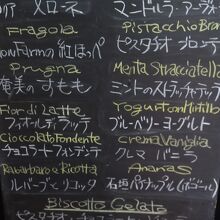 メローネ
マンドルラ・アーヴォ
Fragola
紅ほっぺ
Pistacchio Bron
ピスタチオ ブロン
Prugna
奄美のすもも
Menta Stracciatell
ミントのストラッチャテ
Fior di Latte
フィオール ディ ラッテ
Yogurt
ブルーベリーヨーグルト
Cioccolato Fondente
チョコラート フォンデンテ
Crema Vaniglia
クレマ バニラ
Rabarbaro e Ricotta
ルバーブとリコッタ
Ananas
石垣パイナップル
Biscotto Gelato